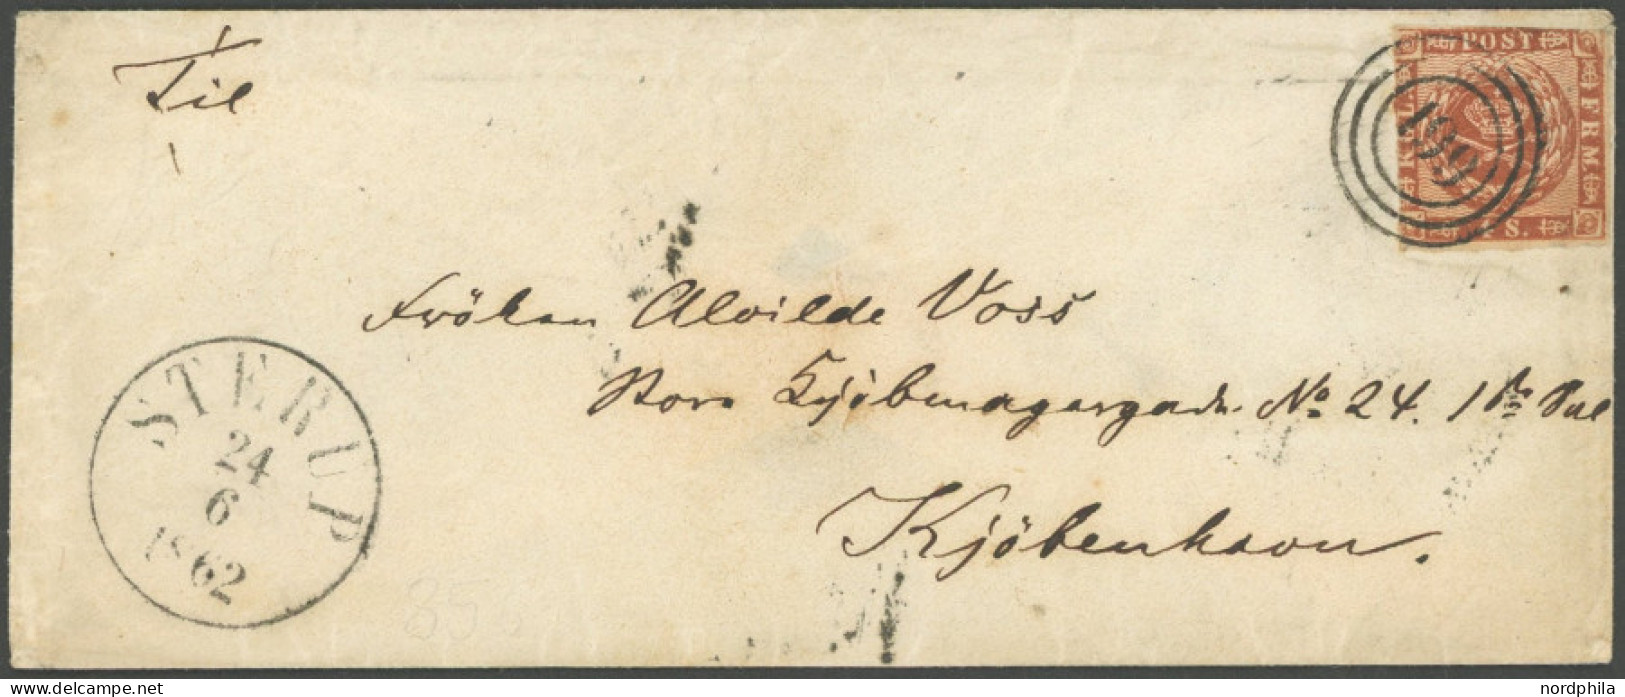 Til
POST
FRM
KGL
S.
199
Fröken Alvilde Voss
Store Kjöbmagergade No 24. 1ste Sal
Kjöbenhavn.
STERUP
24
6
1862
85
nordphila